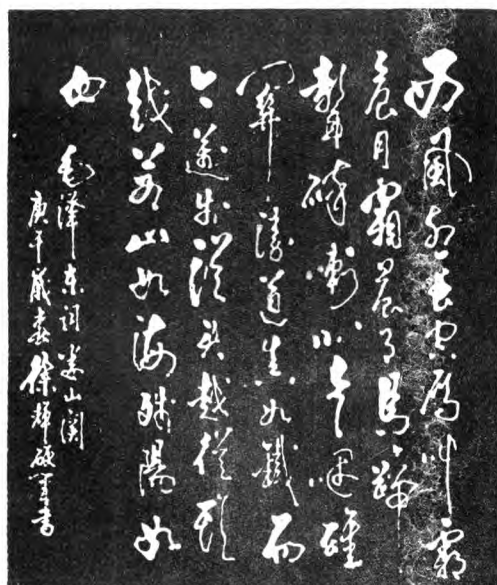 西風烈長空雁叫霜
晨月霜晨月馬蹄
聲碎喇叭聲咽雄
關漫道真如鐵而
今邁步從頭越從頭
越蒼山如海殘陽如
血 毛澤东詞婁山関
庚午歲春徐輝碩書